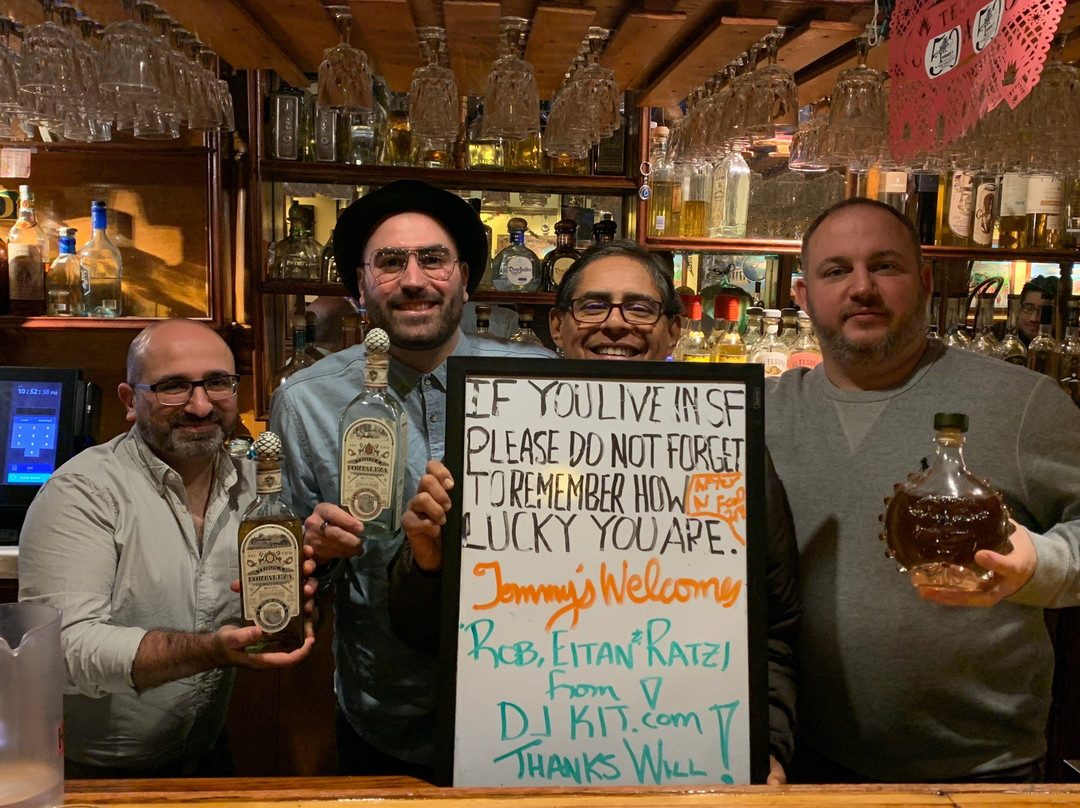 TE
Don Julio
10:52:38 PM
FORTALEZA
TEQUILA
FORTALEZA
IF YOU LIVE IN SF
PLEASE DO NOT FORGET
TO REMEMBER HOW
LUCKY YOU ARE.
Tommy's Welcomes
Rob, Eitan & Ratzi
from
DJ KIT.com!
THANKS WILL!